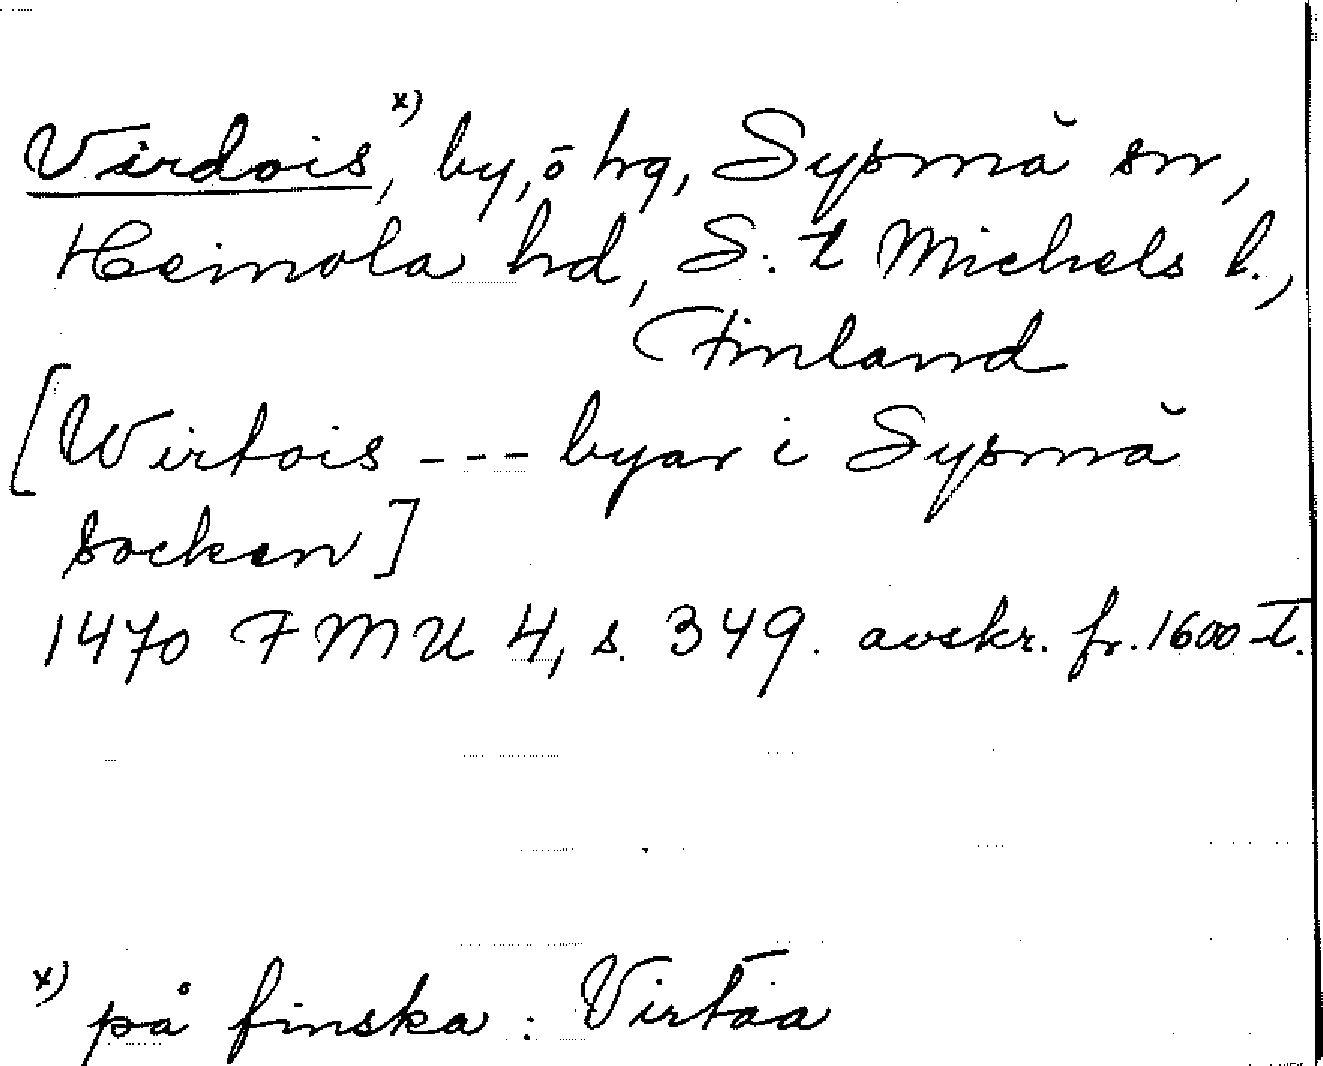 Virdois, x) by, ö hg, Sysmä sn,
Heinola hd, S:t Michels l.,
Finland
[Wirtois --- byar i Sysmä
socken]
1470 FMU 4, s. 349. avskr. fr. 1600-t.
x) på finska: Virtaa